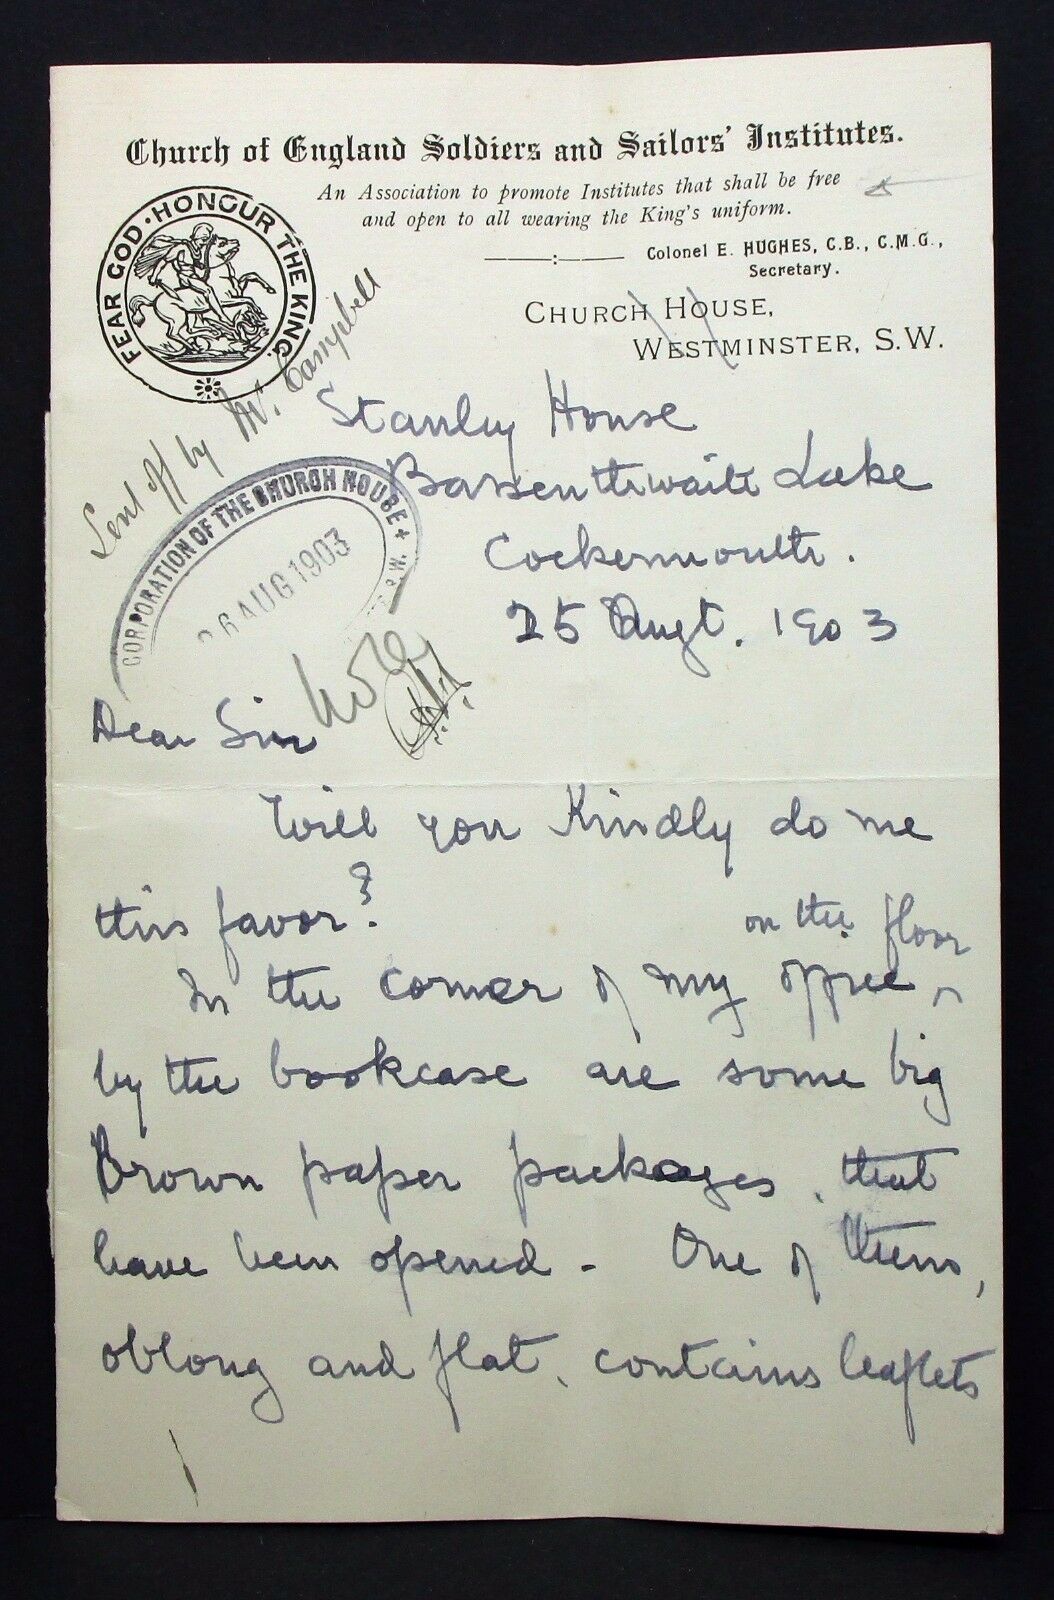 Church of England Soldiers and Sailors' Institutes.
An Association to promote Institutes that shall be free
and open to all wearing the King's uniform.
Colonel E. HUGHES, C.B., C.M.G.,
Secretary.
FEAR GOD · HONOUR THE KING.
CHURCH HOUSE,
WESTMINSTER, S.W.
Sent off by Mr. Campbell
Stanley House
Bassenthwaite Lake
Cockermouth.
25 Augt. 1903
CORPORATION OF THE CHURCH HOUSE + S.W.
26 AUG 1903
Dear Sir
Will you Kindly do me
this favor?
on the floor
In the corner of my office ^
by the bookcase are some big
Brown paper packages, that
have been opened - One of them,
oblong and flat, contains leaflets